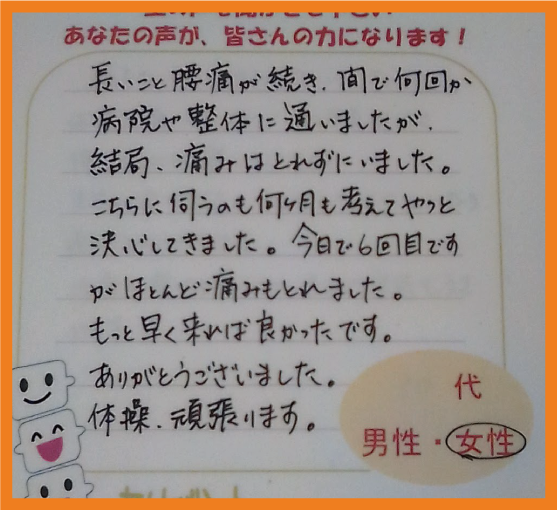 あなたの声が、皆さんの力になります!
長いこと腰痛が続き、間で何回か
病院や整体に通いましたが、
結局、痛みはとれずにいました。
こちらに伺うのも何ヶ月も考えてやっと
決心してきました。今日で6回目です
がほとんど痛みもとれました。
もっと早く来れば良かったです。
ありがとうございました。
体操、頑張ります。
代
男性・女性